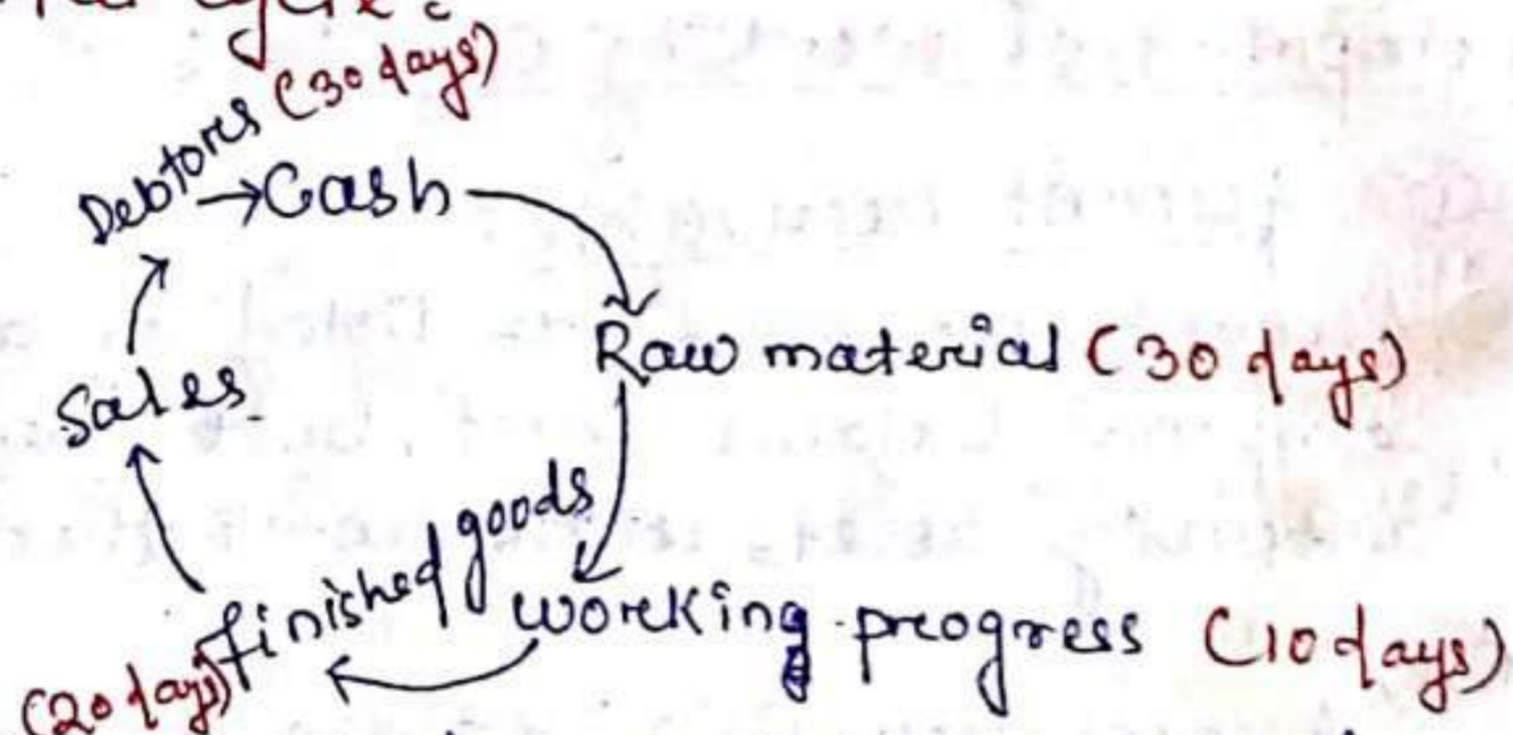 cycle :
Debtores (30 days)
→ Cash
Raw material (30 days)
Sales
finished goods
working progress (10 days)
(20 days)